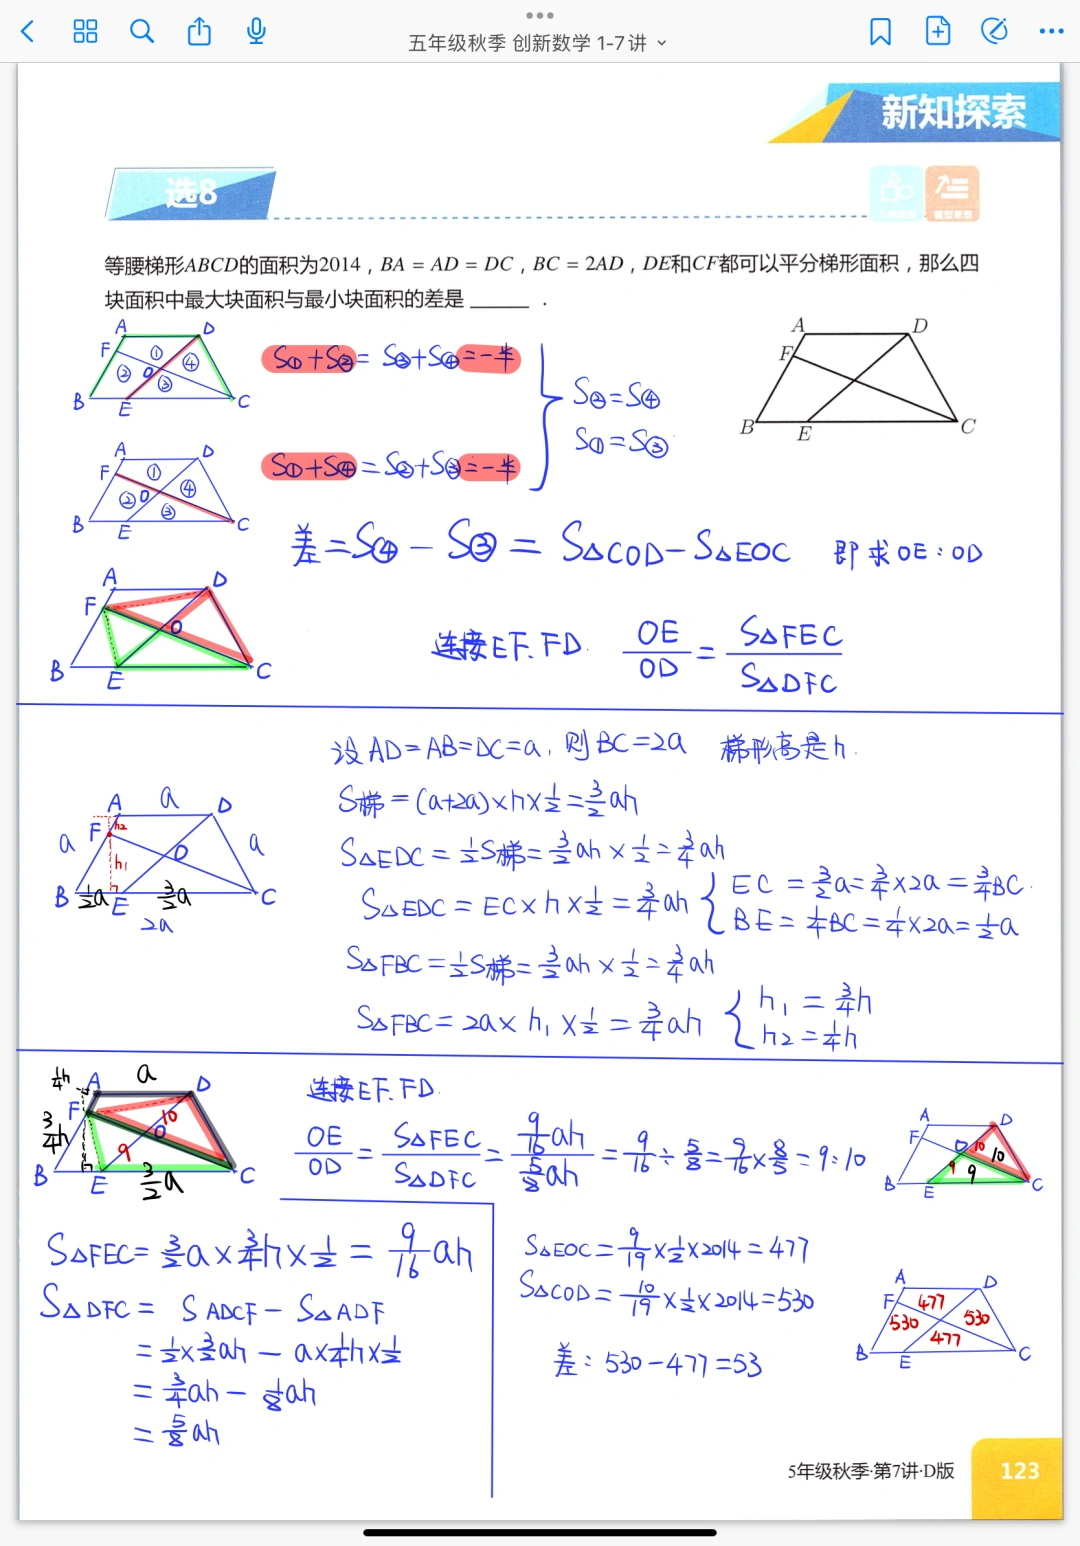 五年级秋季 创新数学 1-7讲
新知探索
选8
等腰梯形ABCD的面积为2014，BA = AD = DC，BC = 2AD，DE和CF都可以平分梯形面积，那么四
块面积中最大块面积与最小块面积的差是 ______ ．
A D F B E C
A D F ① ② O ④ ③ B E C
S①+S②= S③+S④=一半
S②=S④
S①=S③
A D F ① ② O ④ ③ B E C
S①+S④=S②+S③=一半
差=S④-S③= S△COD-S△EOC 即求OE:OD
A D F O B E C
连接EF.FD. OE/OD = S△FEC/S△DFC
设AD=AB=DC=a, 则BC=2a 梯形高是h.
S梯=(a+2a)×h×1/2=3/2ah
A a D F h₂ a O a h₁ B 1/2a E 3/2a C 2a
S△EDC=1/2S梯=3/2ah×1/2=3/4ah
S△EDC=EC×h×1/2=3/4ah
EC=3/2a=3/4×2a=3/4BC.
BE=1/4BC=1/4×2a=1/2a
S△FBC=1/2S梯=3/2ah×1/2=3/4ah
S△FBC=2a×h₁×1/2=3/4ah
h₁=3/4h
h₂=1/4h
1/4h A a D F 10 3/4h O 9 B E 3/2a C
连接EF.FD.
OE/OD = S△FEC/S△DFC = 9/16ah/5/8ah = 9/16÷5/8=9/16×8/5=9:10
A D F O 10 10 9 9 B E C
S△FEC=3/2a×3/4h×1/2=9/16ah
S△DFC= S ADCF-S△ADF
=1/2×3/2ah-a×1/4h×1/2
=3/4ah-1/8ah
=5/8ah
S△EOC=9/19×1/2×2014=477
S△COD=10/19×1/2×2014=530
差:530-477=53
A D F 477 530 530 477 B E C
5年级秋季·第7讲·D版
123